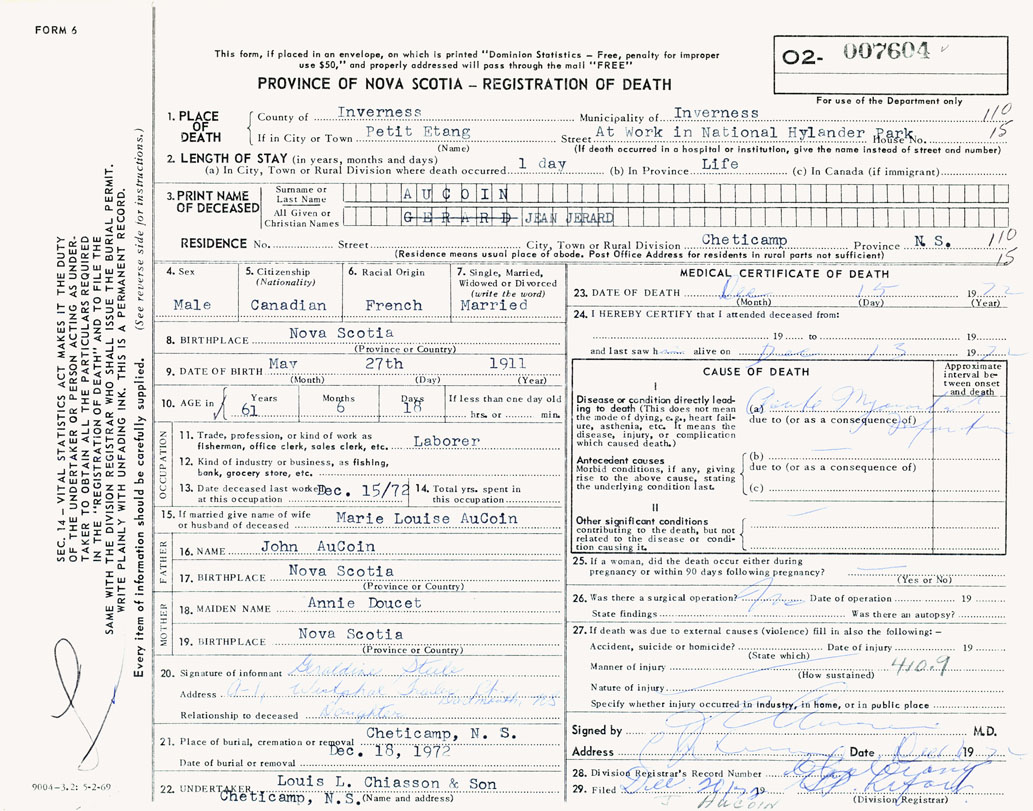 FORM 6
This form, if placed in an envelope, on which is printed "Dominion Statistics – Free, penalty for improper
use $50," and properly addressed will pass through the mail "FREE"
PROVINCE OF NOVA SCOTIA – REGISTRATION OF DEATH
02- 007604
For use of the Department only
1. PLACE OF DEATH
County of Inverness Municipality of Inverness 110
If in City or Town Petit Etang Street At Work in National Hylander Park House No. 15
(Name) (If death occurred in a hospital or institution, give the name instead of street and number)
2. LENGTH OF STAY (in years, months and days)
(a) In City, Town or Rural Division where death occurred 1 day (b) In Province Life (c) In Canada (if immigrant)
3. PRINT NAME OF DECEASED
Surname or Last Name AUCOIN
All Given or Christian Names GERARD JEAN JERARD
RESIDENCE No. Street City, Town or Rural Division Cheticamp Province N.S. 110
(Residence means usual place of abode. Post Office Address for residents in rural parts not sufficient) 15
4. Sex
Male
5. Citizenship
(Nationality)
Canadian
6. Racial Origin
French
7. Single, Married,
Widowed or Divorced
(write the word)
Married
8. BIRTHPLACE Nova Scotia
(Province or Country)
9. DATE OF BIRTH May 27th 1911
(Month) (Day) (Year)
10. AGE in Years 61 Months 6 Days 18 If less than one day old
hrs. or min.
OCCUPATION
11. Trade, profession, or kind of work as
fisherman, office clerk, sales clerk, etc. Laborer
12. Kind of industry or business, as fishing,
bank, grocery store, etc.
13. Date deceased last worked Dec. 15/72
at this occupation
14. Total yrs. spent in
this occupation
15. If married give name of wife
or husband of deceased Marie Louise AuCoin
FATHER
16. NAME John AuCoin
17. BIRTHPLACE Nova Scotia
(Province or Country)
MOTHER
18. MAIDEN NAME Annie Doucet
19. BIRTHPLACE Nova Scotia
(Province or Country)
20. Signature of informant Geraldine
Address Dartmouth, NS
Relationship to deceased Daughter
21. Place of burial, cremation or removal Cheticamp, N. S.
Date of burial or removal Dec. 18, 1972
22. UNDERTAKER Louis L. Chiasson & Son
Cheticamp, N.S. (Name and address)
MEDICAL CERTIFICATE OF DEATH
23. DATE OF DEATH Dec 15 1972
(Month) (Day) (Year)
24. I HEREBY CERTIFY that I attended deceased from:
19 to 19
and last saw him alive on 13 1972
CAUSE OF DEATH
Approximate interval between onset and death
I
Disease or condition directly lead-
ing to death (This does not mean
the mode of dying, e.g., heart fail-
ure, asthenia, etc. It means the
disease, injury, or complication
which caused death.)
(a)
due to (or as a consequence of)
Antecedent causes
Morbid conditions, if any, giving
rise to the above cause, stating
the underlying condition last.
(b)
due to (or as a consequence of)
(c)
II
Other significant conditions
contributing to the death, but not
related to the disease or condi-
tion causing it.
25. If a woman, did the death occur either during
pregnancy or within 90 days following pregnancy?
(Yes or No)
26. Was there a surgical operation? Date of operation 19
State findings Was there an autopsy?
27. If death was due to external causes (violence) fill in also the following: –
Accident, suicide or homicide? Date of injury 19
(State which)
Manner of injury 410.9
(How sustained)
Nature of injury
Specify whether injury occurred in industry, in home, or in public place
Signed by M.D.
Address Date Dec 1972
28. Division Registrar's Record Number
29. Filed Dec 19
(Division Registrar)
AUCOIN
SEC. 14 – VITAL STATISTICS ACT MAKES IT THE DUTY
OF THE UNDERTAKER OR PERSON ACTING AS UNDER-
TAKER TO OBTAIN ALL THE PARTICULARS REQUIRED
IN THE "REGISTRATION OF DEATH" AND TO FILE THE
SAME WITH THE DIVISION REGISTRAR WHO SHALL ISSUE THE BURIAL PERMIT.
WRITE PLAINLY WITH UNFADING INK. THIS IS A PERMANENT RECORD.
Every item of information should be carefully supplied. (See reverse side for instructions.)
9004-3.2: 5-2-69